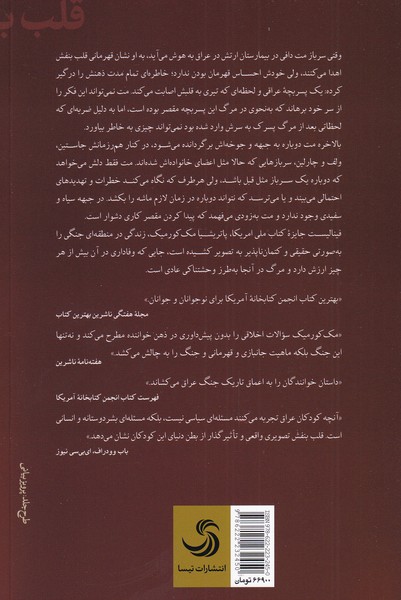 قلب بـ
وقتی سرباز مت دافی در بیمارستان ارتش در عراق به هوش می‌آید، به او نشان قهرمانی قلب بنفش
اهدا می‌کنند، ولی خودش احساس قهرمان بودن ندارد؛ خاطره‌ای تمام مدت ذهنش را درگیر
کرده: یک پسربچهٔ عراقی و لحظه‌ای که تیری به قلبش اصابت می‌کند. مت نمی‌تواند این فکر را
از سر خود برهاند که به‌نحوی در مرگ این پسربچه مقصر بوده است، اما به دلیل ضربه‌ای که
لحظاتی بعد از مرگ پسرک به سرش وارد شده بود نمی‌تواند چیزی به خاطر بیاورد.
بالاخره مت دوباره به جبهه و جوخه‌اش برگردانده می‌شود، در کنار هم‌رزمانش جاستین،
ولف و چارلین، سربازهایی که حالا مثل اعضای خانواده‌اش شده‌اند. مت فقط دلش می‌خواهد
که دوباره یک سرباز مثل قبل باشد، ولی هرطرف که نگاه می‌کند خطرات و تهدیدهای
احتمالی می‌بیند و یا می‌ترسد که نتواند دوباره در زمان لازم ماشه را بکشد. در جبهه سیاه و
سفیدی وجود ندارد و مت به‌زودی می‌فهمد که پیدا کردن مقصر کاری دشوار است.
فینالیست جایزهٔ کتاب ملی امریکا، پاتریشیا مک‌کورمیک، زندگی در منطقه‌ای جنگی را
به‌صورتی حقیقی و کتمان‌ناپذیر به تصویر کشیده است، جایی که وفاداری در آن بیش از هر
چیز ارزش دارد و مرگ در آنجا به‌طرز وحشتناکی عادی است.
«بهترین کتاب انجمن کتابخانهٔ آمریکا برای نوجوانان و جوانان»
مجلهٔ هفتگی ناشرین بهترین کتاب
«مک‌کورمیک سؤالات اخلاقی را بدون پیش‌داوری در ذهن خواننده مطرح می‌کند و نه‌تنها
این جنگ بلکه ماهیت جانبازی و قهرمانی و جنگ را به چالش می‌کشد.»
هفته‌نامهٔ ناشرین
«داستان خوانندگان را به اعماق تاریک جنگ عراق می‌کشاند.»
فهرست کتاب انجمن کتابخانهٔ آمریکا
«آنچه کودکان عراق تجربه می‌کنند مسئله‌ای سیاسی نیست، بلکه مسئله‌ای بشردوستانه و انسانی
است. قلب بنفش تصویری واقعی و تأثیرگذار از بطن دنیای این کودکان نشان می‌دهد.»
باب وودراف، ای‌بی‌سی نیوز
طرح جلد: پرویز بیانی
انتشارات تیسا
ISBN 978-622-223-245-0
9786222232450
۶۶۹۰۰ تومان